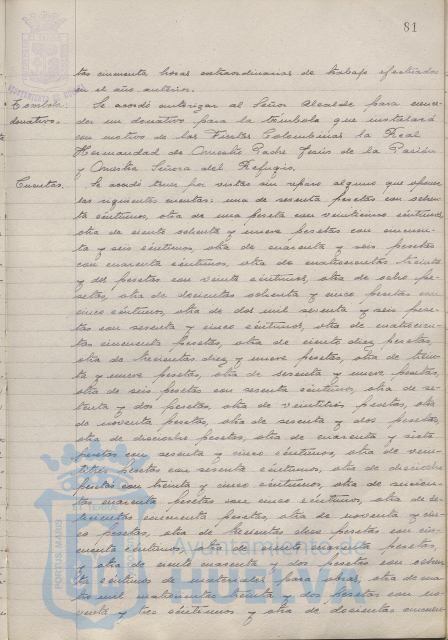 81
tas cincuenta horas extraordinarias de trabajo efectuadas
en el año anterior.
Tómbola: Se acordó autorizar al Señor Alcalde para conce-
donativo. der un donativo para la tómbola que instalará
con motivo de las Fiestas Colombinas la Real
Hermandad de Nuestro Padre Jesús de la Pasión
y Nuestra Señora del Refugio.
Cuentas. Se acordó tener por vistas sin reparo alguno que oponer
las siguientes cuentas: una de sesenta pesetas con ochen-
ta céntimos, otra de una peseta con veinticinco céntimos,
otra de ciento ochenta y nueve pesetas con cincuen-
ta y seis céntimos, otra de cuarenta y seis pesetas
con cuarenta céntimos, otra de cuatrocientas treinta
y dos pesetas con veinte céntimos, otra de ocho pe-
setas, otra de doscientas ochenta y cinco pesetas con
cinco céntimos, otra de dos mil sesenta y seis pese-
tas con sesenta y cinco céntimos, otra de cuatrocien-
tas cincuenta pesetas, otra de ciento diez pesetas,
otra de trescientas diez y nueve pesetas, otra de trein-
ta y nueve pesetas, otra de sesenta y nueve pesetas,
otra de seis pesetas con sesenta céntimos, otra de se-
tenta y dos pesetas, otra de veintitrés pesetas, otra
de noventa pesetas, otra de sesenta y dos pesetas,
otra de dieciocho pesetas, otra de cuarenta y siete
pesetas con sesenta y cinco céntimos, otra de vein-
titres pesetas con sesenta céntimos, otra de dieciocho
pesetas con treinta y cinco céntimos, otra de
tas cuarenta pesetas con cinco céntimos, otra de
cientas cincuenta pesetas, otra de noventa y cin-
co pesetas, otra de trescientas doce pesetas con cin-
cuenta céntimos, otra de ciento cuarenta pesetas,
y otra de ciento cuarenta y dos pesetas con ochen-
ta céntimos de materiales para obras, otra de cua-
tro mil cuatrocientas treinta y dos pesetas con no-
venta y tres céntimos y otra de doscientas cincuen-
PORTUS MARIS
TERRAE
Ayuntamiento de
HUELVA